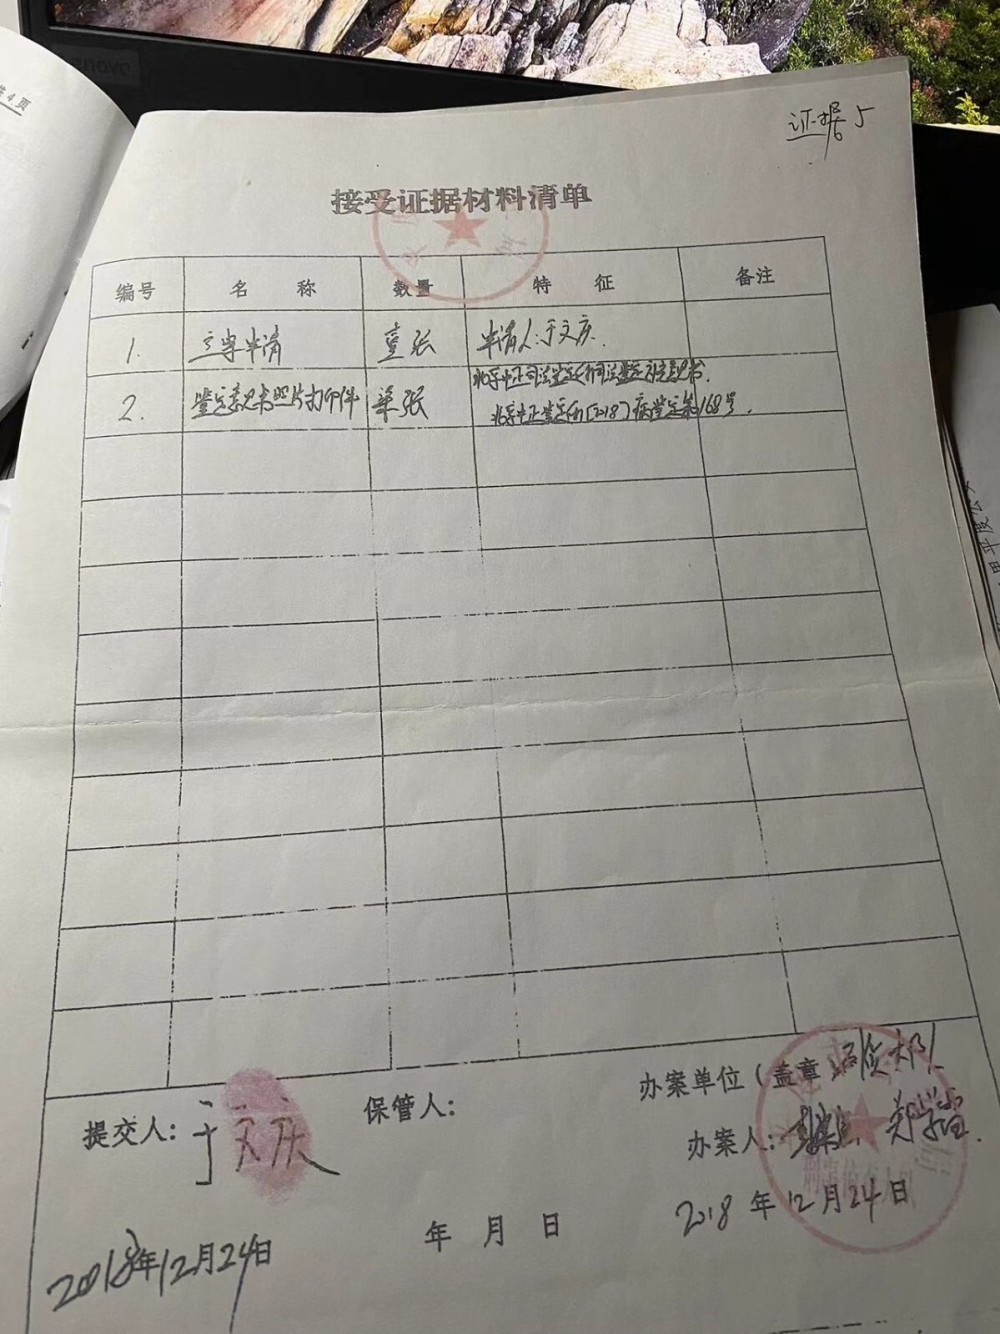 共4页
证据5
接受证据材料清单
编号 名 称 数量 特 征 备注
1. 立案申请 壹张 申请人:于文庆.
2. 鉴定意见书照片打印件 柒张 北京中正司法鉴定所司法鉴定意见书.
北京中正鉴定所[2018]病鉴定第168号.
提交人: 于文庆
保管人:
办案单位(盖章) 大队
办案人: 郑学
2018年12月24日
年 月 日
2018年12月24日